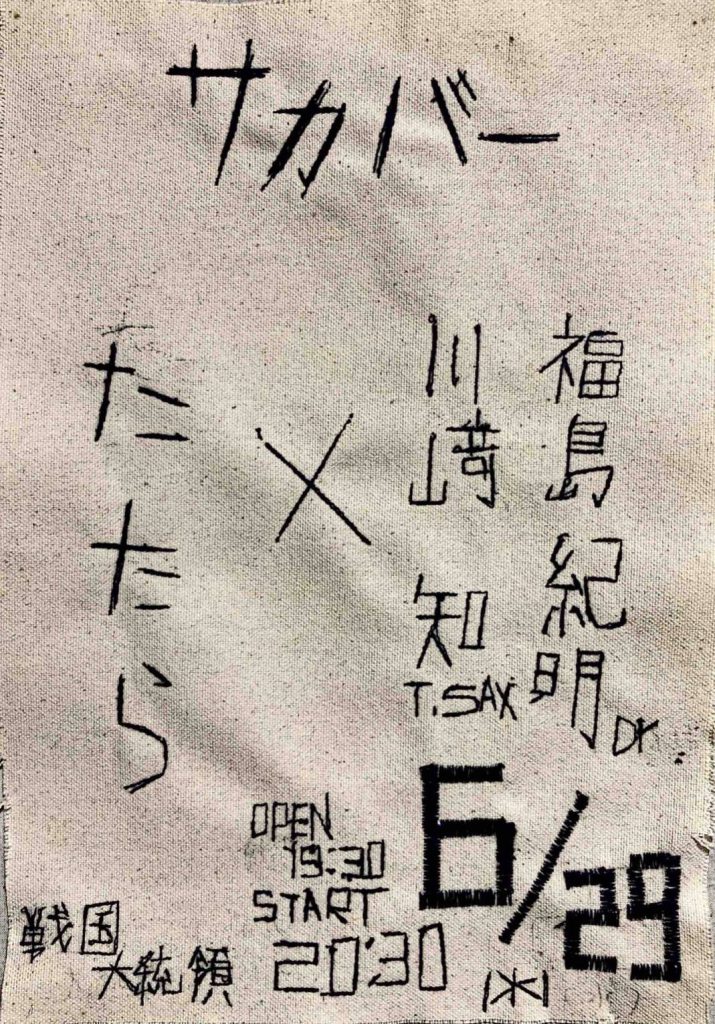 サカバー
福島紀明 Dr
川﨑 知 T.SAX
×
たたら
6/29
(水)
OPEN
19:30
START
20:30
戦国
大統領